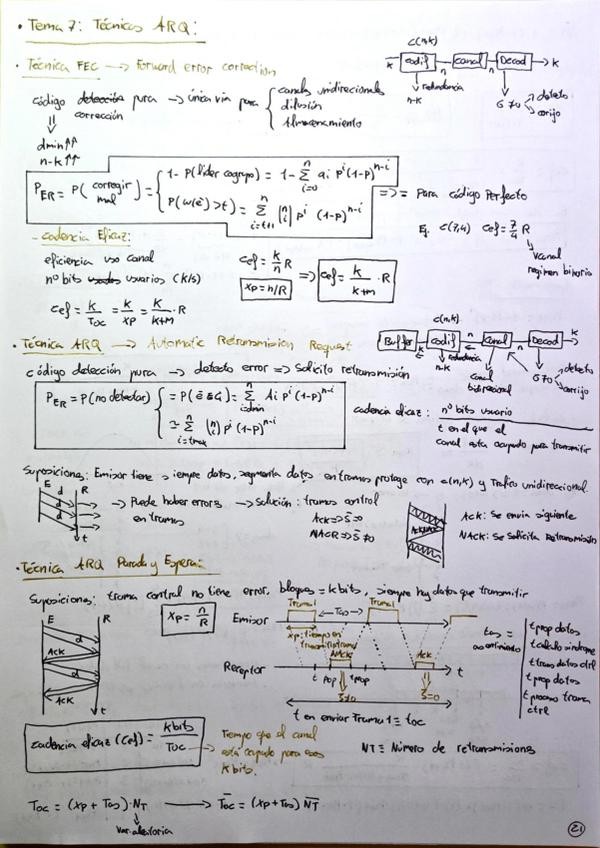 • Tema 7: Técnicas ARQ:
• Técnica FEC → Forward error correction
c(n,k)
k codif n canal n Decod k
redundancia n-k
detecto
corrijo
código detección pura → única vía para
corrección
canales unidireccionales
difusión
Almacenamiento
dmin ↑↑
n-k ↑↑
P_ER = P( corregir mal ) =
1 - P(líder cogrupo) = 1 - Σ_{i=0}^{n} ai p^i (1-p)^{n-i}
P(w(e) > t) = Σ_{i=t+1}^{n} (n i) p^i (1-p)^{n-i}
=> = Para código Perfecto
- Cadencia Eficaz:
Ej. c(7,4) Cef = 7/4 R
Vcanal
regimen binario
eficiencia uso canal
nº bits usados usuarios (k/s)
Cef = k/n R
Xp = n/R
=> Cef = k/(k+m) · R
Cef = k/Toc = k/Xp = k/(k+m) · R
• Técnica ARQ → Automatic Retransmission Request
c(n,k)
Buffer k codif n canal n Decod k
redundancia n-k
canal bidireccional
detecto
corrijo
código detección pura → detecto error => Solicito retransmisión
P_ER = P(no detectar)
= P(ē ≡ c̄) = Σ_{i=dmin}^{n} Ai p^i (1-p)^{n-i}
≃ Σ_{i=tmax}^{n} (n i) p^i (1-p)^{n-i}
cadencia eficaz: nº bits usuario
t en el que el
canal esta ocupado para transmitir
Suposiciones: Emisor tiene siempre datos, segmenta datos en tramas protege con c(n,k) y Trafico unidireccional.
E R
d
d
d
t
→ Puede haber errores en tramas
→ Solución: tramas control
Ack => s̄ = 0
NACK => s̄ ≠ 0
Ack: Se envia siguiente
NACK: Se solicita Retransmisión
• Técnica ARQ Parada y Espera:
Suposiciones: trama control no tiene error, bloques = k bits, siempre hay datos que transmitir
E R
d
ACK
ACK
t
Xp = n/R
Emisor
Trama1
Tas
Trama1
Xp: tiempo en transmitir trama
NAck
Ack
Receptor
t prop
t prop
t
s̄ ≠ 0
s̄ = 0
t en enviar Trama 1 ≡ toc
tas =
t prop datos
t calculo sindrome
t trans datos ctrl
t prop datos
t proceso trama ctrl
cadencia eficaz (Cef) = k bits / Toc
Tiempo que el canal
está ocupado para esos
k bits.
NT ≡ Número de retransmisiones
Toc = (Xp + Tas) · NT → T̄oc = (Xp + Tas) N̄T
Var. aleatoria
21